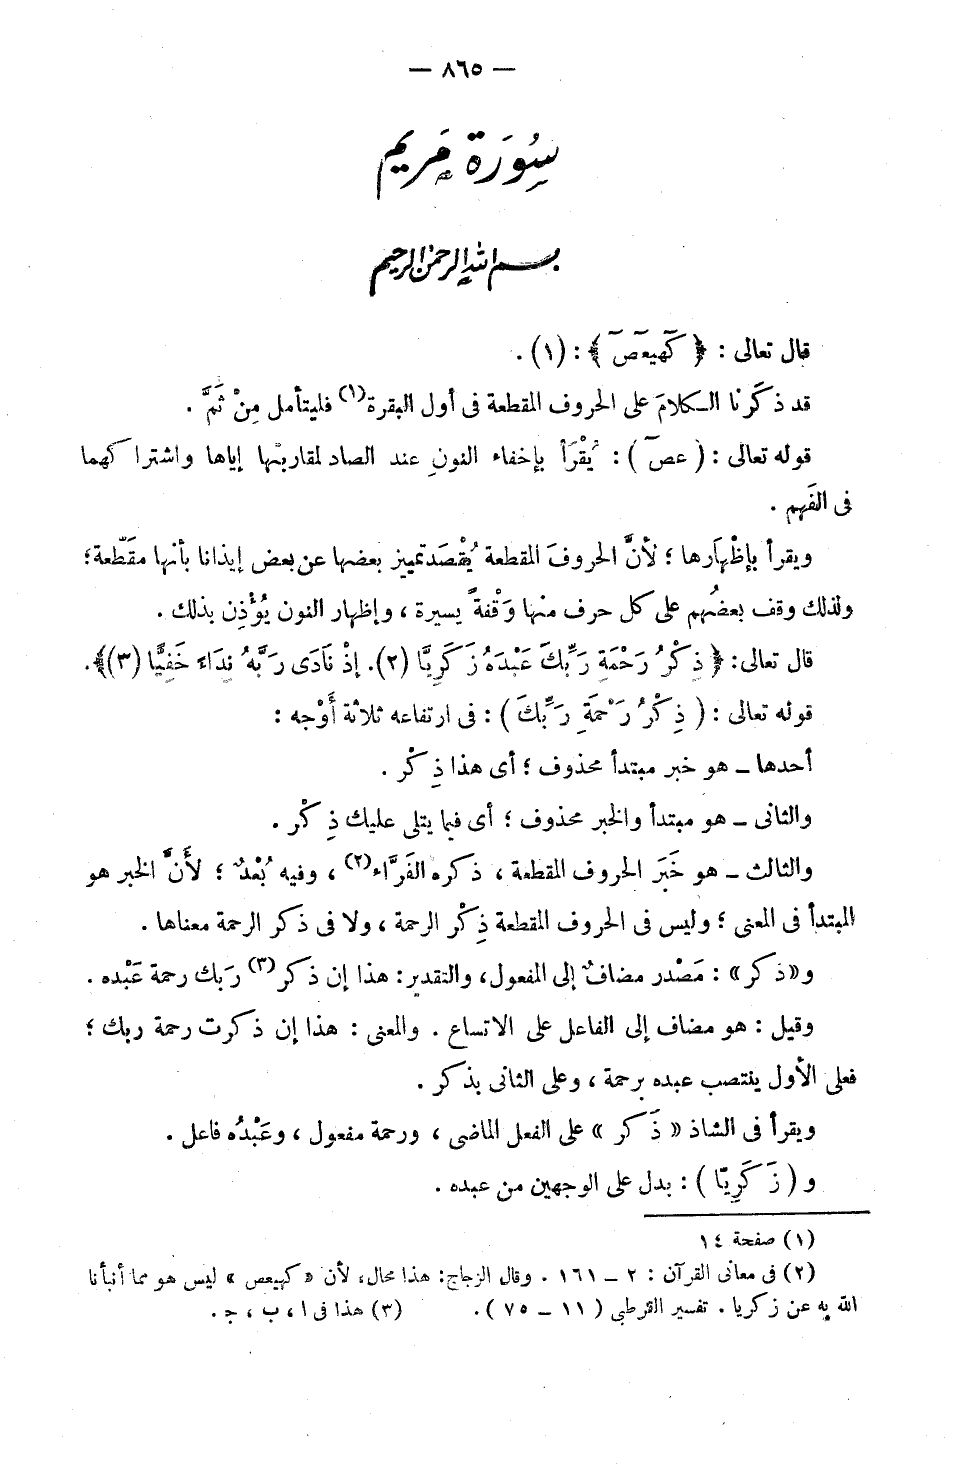 — ٨٦٥ —
سُورَة مَريم
بسم الله الرحمن الرحيم
قال تعالى : ﴿ كَهيعَصَ ﴾ : (١) .
قد ذكَرْنا الكلامَ على الحروف المقطعة فى أول البقرة(١) فليتأمل مِنْ ثَمَّ .
قوله تعالى : ( عصَ ) : يُقْرَأ بإخفاء النونِ عند الصاد لمقاربتها إياها واشتراكهما
فى الفَهم .
ويقرأ بإظْهارها ؛ لأنَّ الحروفَ المقطعة يُقْصَد تمييز بعضها عن بعض إيذانا بأنها مقَطّعة؛
ولذلك وقف بعضُهم على كل حرف منها وَقْفةً يسيرة ، وإظهار النون يُؤْذِن بذلك .
قال تعالى: ﴿ ذِكْرُ رَحْمَةِ رَبِّكَ عَبْدَهُ زَكَرِيَّا (٢). إذْ نَادَى رَبَّهُ نِدَاءً خَفِيًّا (٣)﴾.
قوله تعالى : ( ذِكْرُ رَحْمَةِ رَبِّكَ ) : فى ارتفاعه ثلاثة أَوْجه :
أحدها ــ هو خبر مبتدأ محذوف ؛ أى هذا ذِكْر .
والثانى ــ هو مبتدأ والخبر محذوف ؛ أى فيما يتلى عليك ذِكْر .
والثالث ــ هو خَبَر الحروف المقطعة ، ذكره الفَرَّاء(٢) ، وفيه بُعْدٌ ؛ لأَنَّ الخبر هو
المبتدأ فى المعنى ؛ وليس فى الحروف المقطعة ذِكْر الرحمة ، ولا فى ذكر الرحمة معناها .
و«ذكر» : مَصْدر مضافٌ إلى المفعول، والتقدير: هذا إن ذكر(٣) رَبك رحمة عَبْده .
وقيل : هو مضاف إلى الفاعل على الاتساع . والمعنى : هذا إن ذكرت رحمة ربك ؛
فعلى الأول ينتصب عبده برحمة ، وعلى الثانى بذكر .
ويقرأ فى الشاذ « ذَكر » على الفعل الماضى ، ورحمة مفعول ، وعَبْدُه فاعل .
و ( زَكَرِيّا ) : بدل على الوجهين من عبده .
(١) صفحة ١٤
(٢) فى معانى القرآن : ٢ ــ ١٦١ . وقال الزجاج: هذا محال، لأن « كهيعص » ليس هو مما أنبأنا
الله به عن زكريا . تفسير القرطبى ( ١١ ــ ٧٥ ). (٣) هذا فى ا ، ب ، ج .